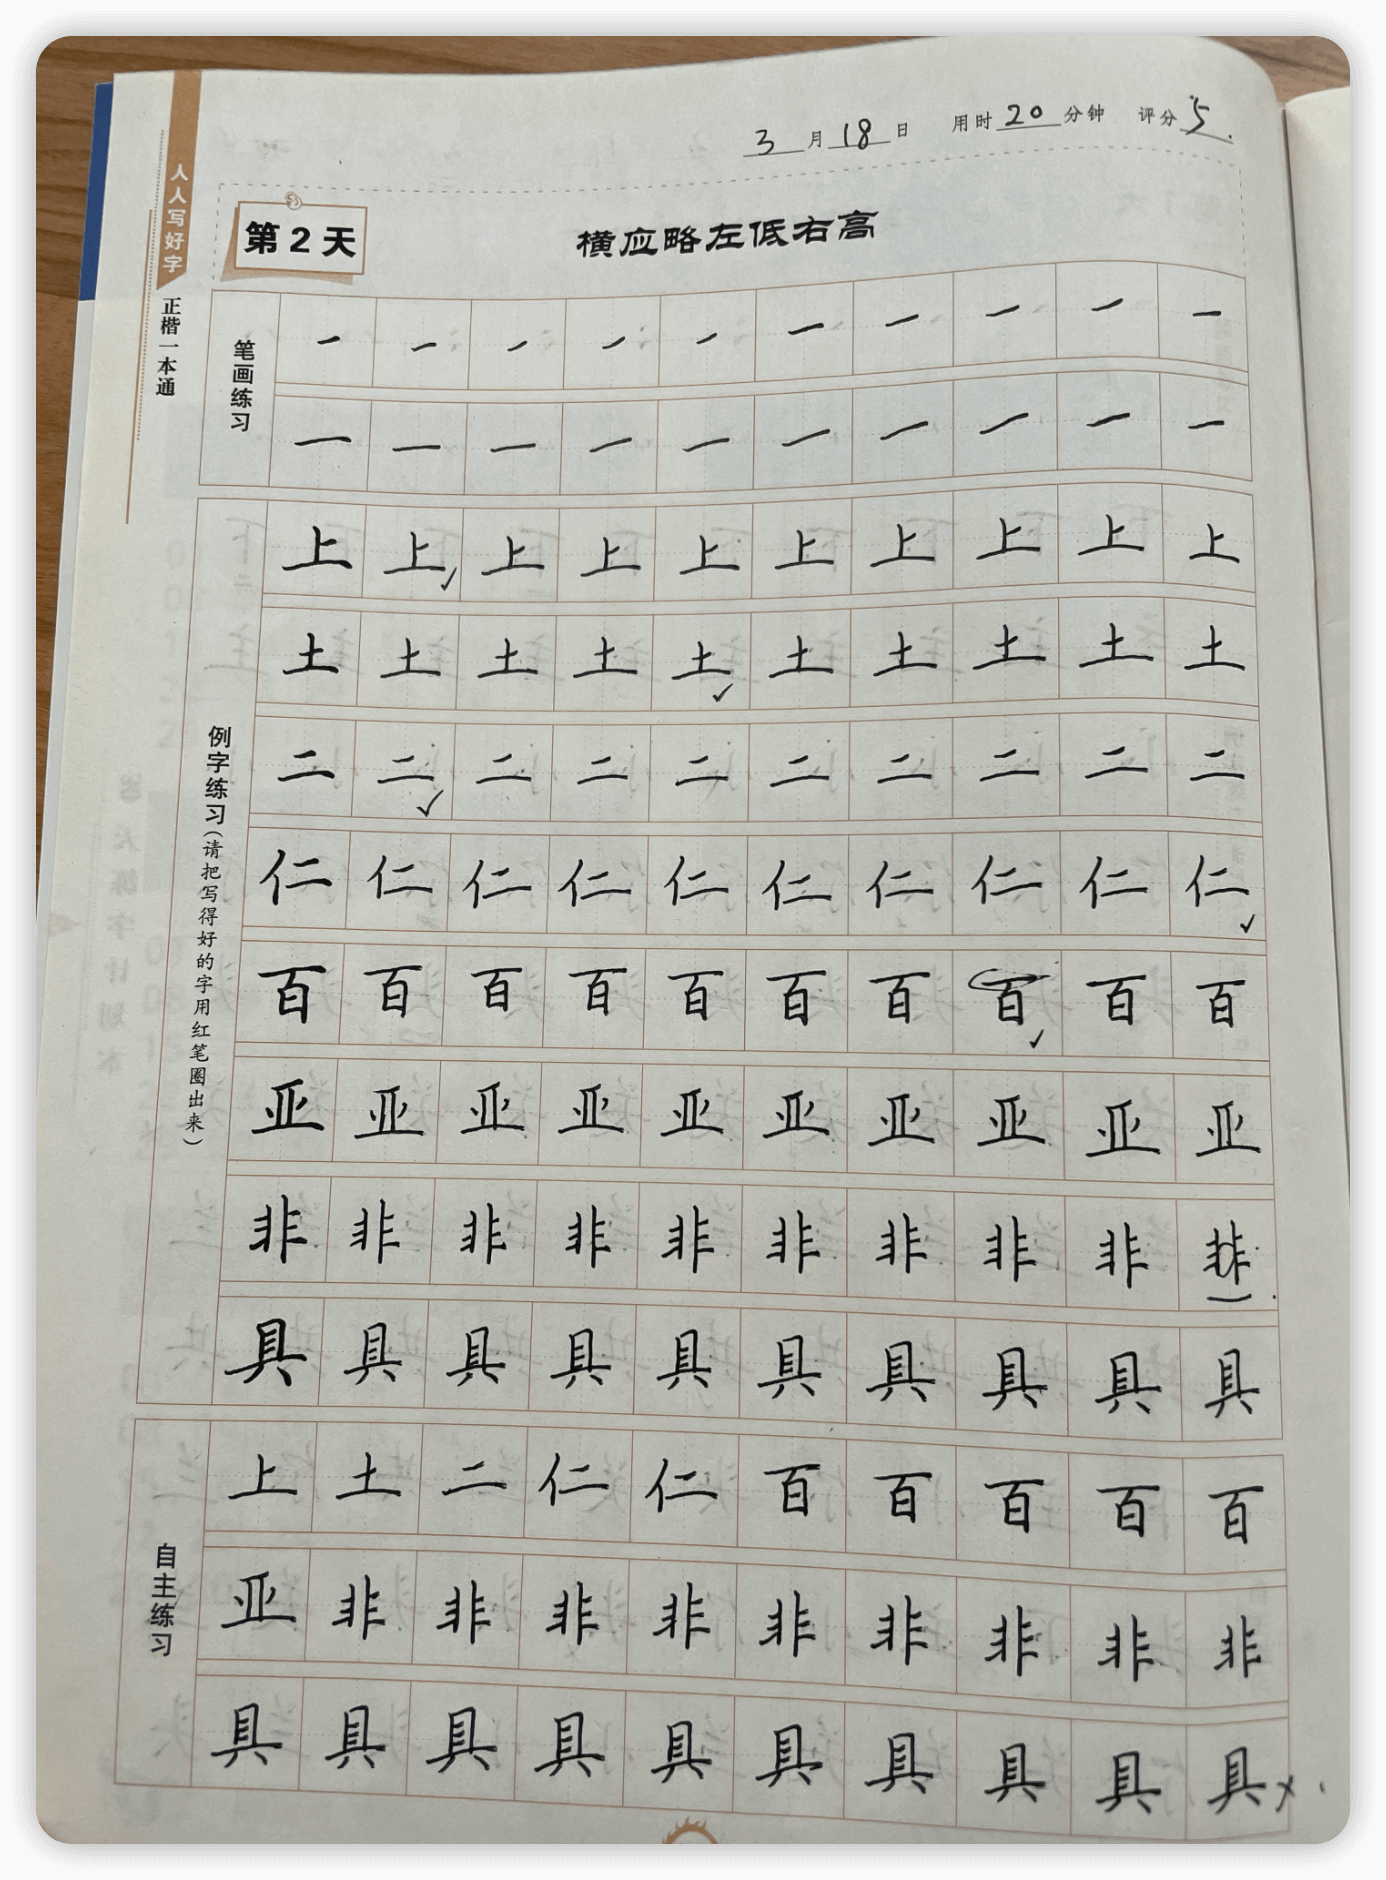 3月18日 用时20分钟 评分5.
人人写好字
正楷一本通
第2天
横应略左低右高
笔画练习
一 一 一 一 一 一 一 一 一 一
一 一 一 一 一 一 一 一 一 一
例字练习(请把写得好的字用红笔圈出来)
上 上 上 上 上 上 上 上 上 上
土 土 土 土 土 土 土 土 土 土
二 二 二 二 二 二 二 二 二 二
仁 仁 仁 仁 仁 仁 仁 仁 仁 仁
百 百 百 百 百 百 百 百 百 百
亚 亚 亚 亚 亚 亚 亚 亚 亚 亚
非 非 非 非 非 非 非 非 非 非
具 具 具 具 具 具 具 具 具 具
自主练习
上 土 二 仁 仁 百 百 百 百 百
亚 非 非 非 非 非 非 非 非 非
具 具 具 具 具 具 具 具 具 具